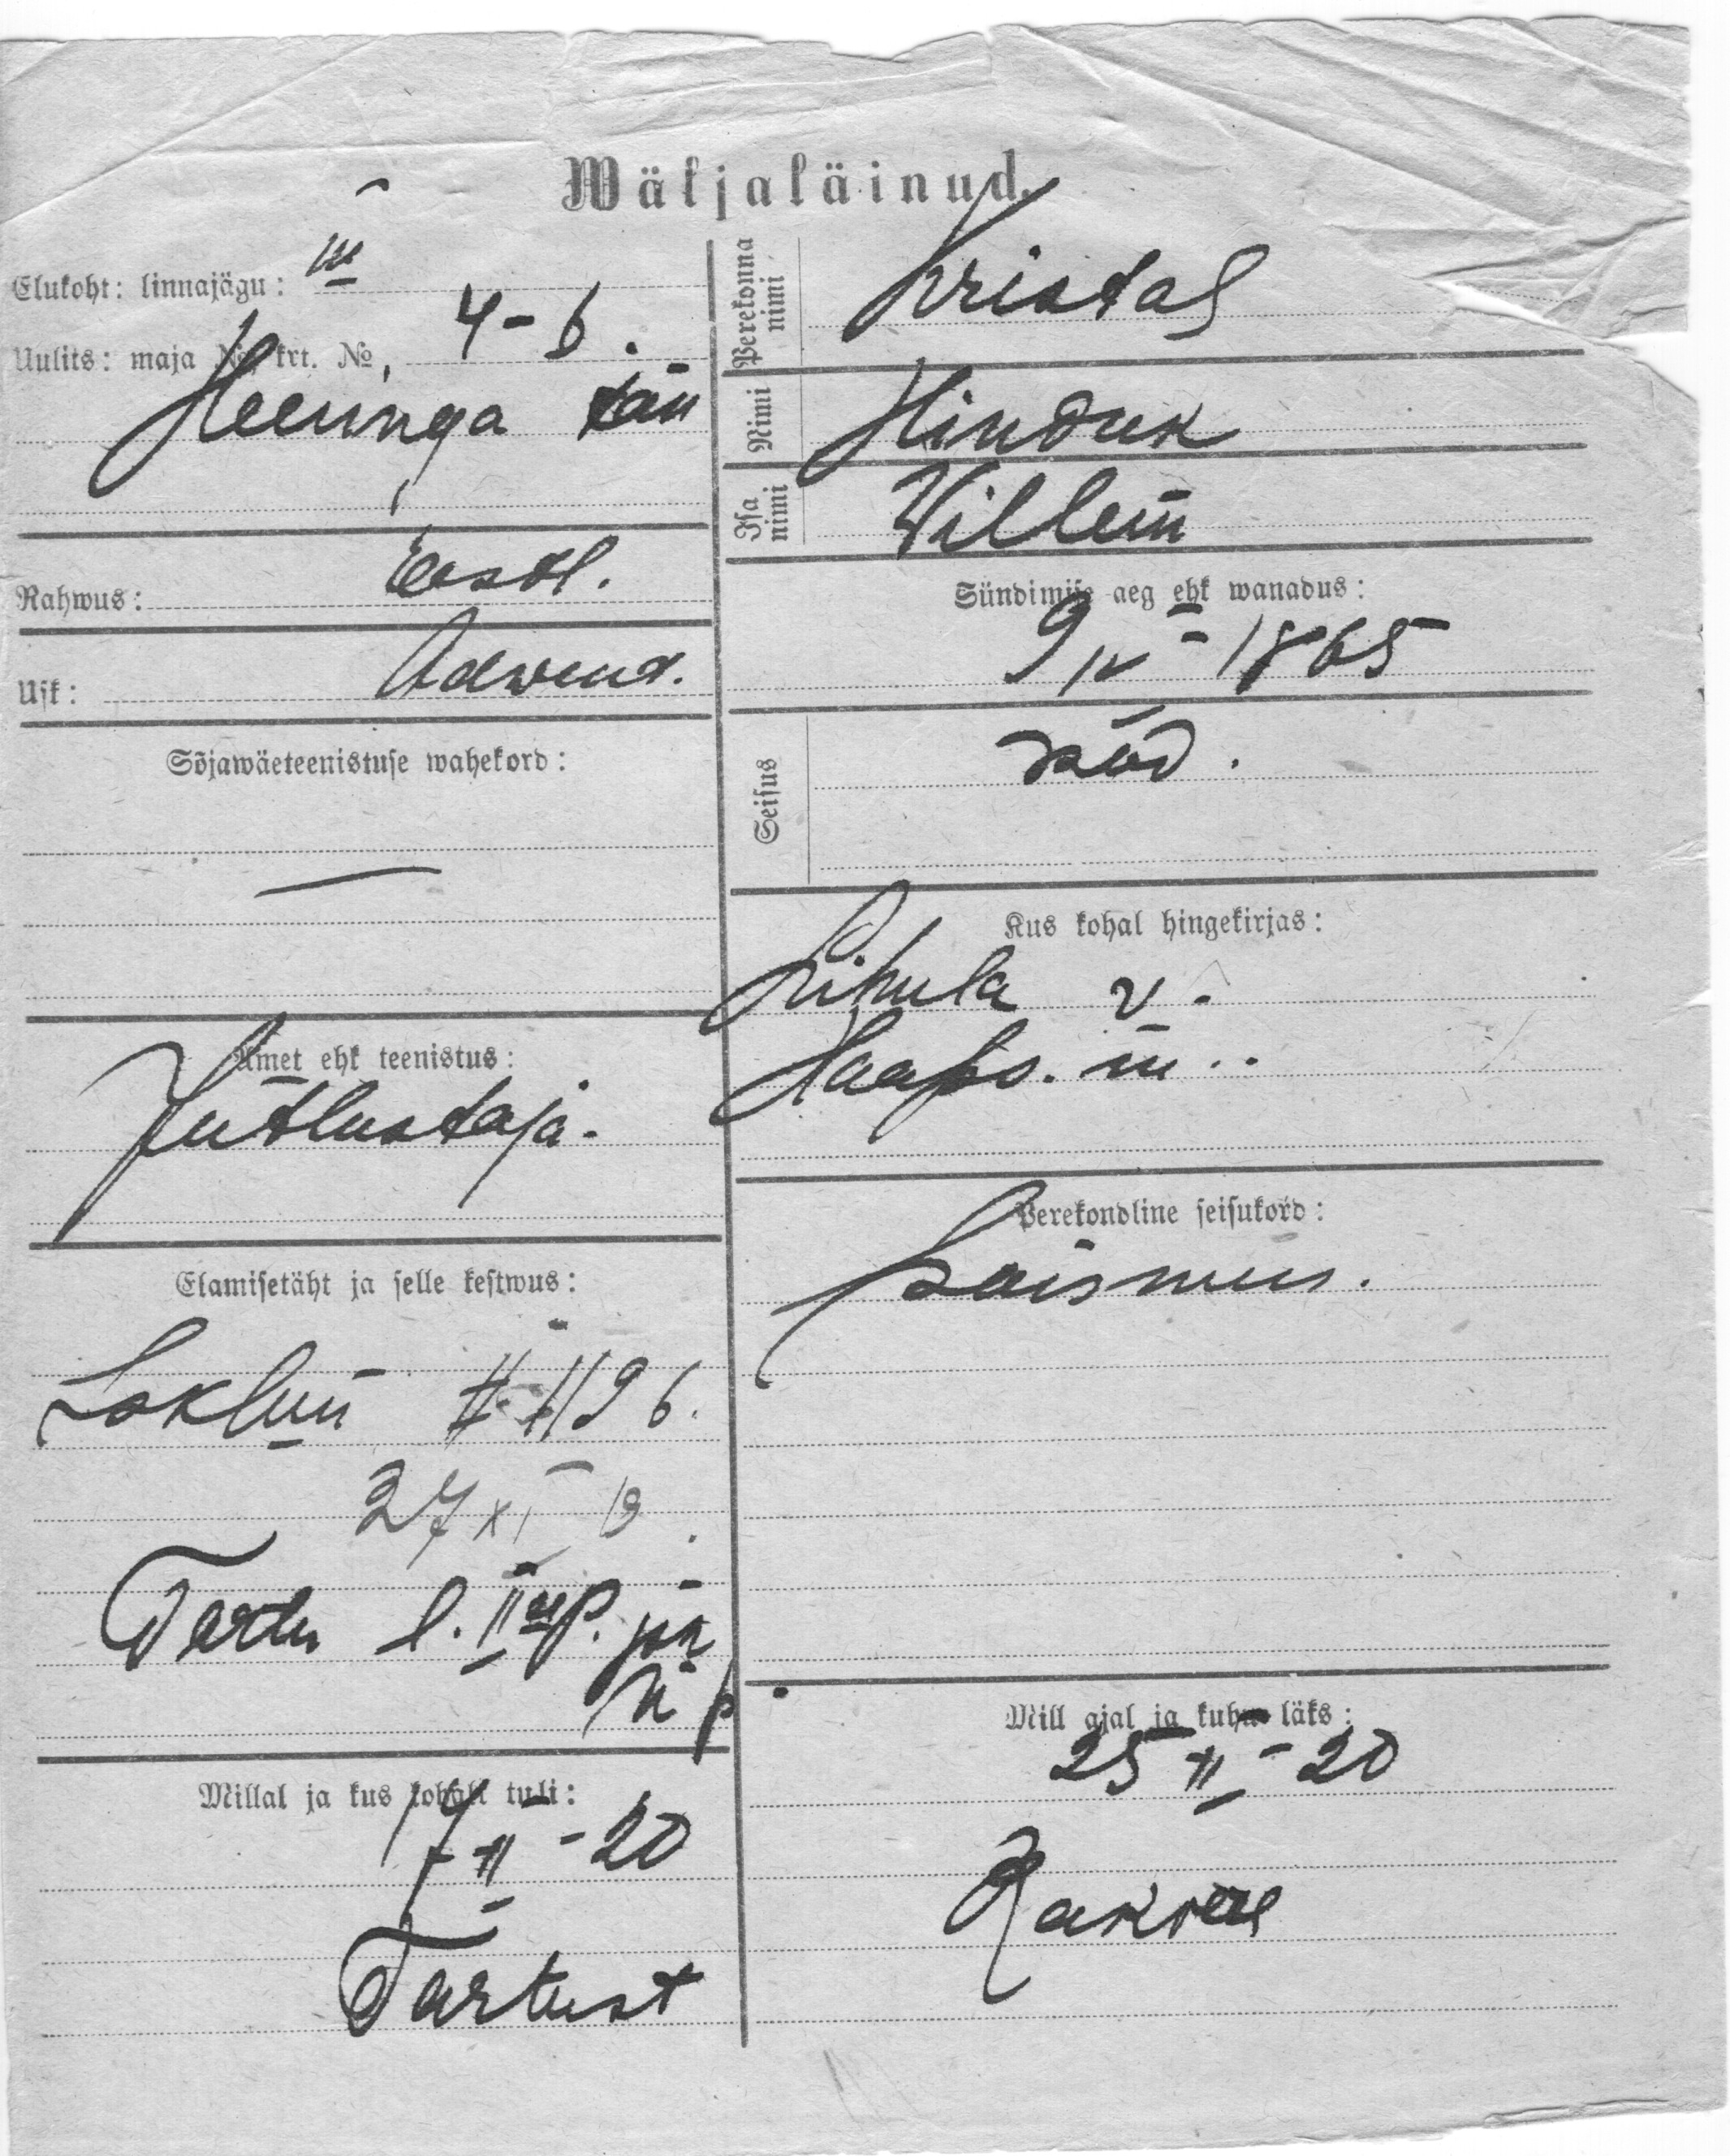 Wäljaläinud.
Elukoht: linnajägu: III
Uulits: maja № krt. № 4-6.
Heeringa tän
Rahwus: Eestl.
Usk: Adwend.
Sõjawäeteenistuse wahekord:
—
Amet ehk teenistus:
Jutlustaja.
Elamisetäht ja selle kestwus:
1196.
27 XI 19.
Tartu l. II jsk.
Millal ja kus kohalt tuli:
17 II - 20
Tartust
Perekonna nimi Kristal
Nimi Hinduk
Isa nimi Willem
Sündimise aeg ehk wanadus:
9 IV - 1865
Seisus
Kus kohal hingekirjas:
Lihula v.
Haaps. m..
Perekondline seisukord:
Laismees.
Mill ajal ja kuhu läks:
25 II - 20
Rakvere